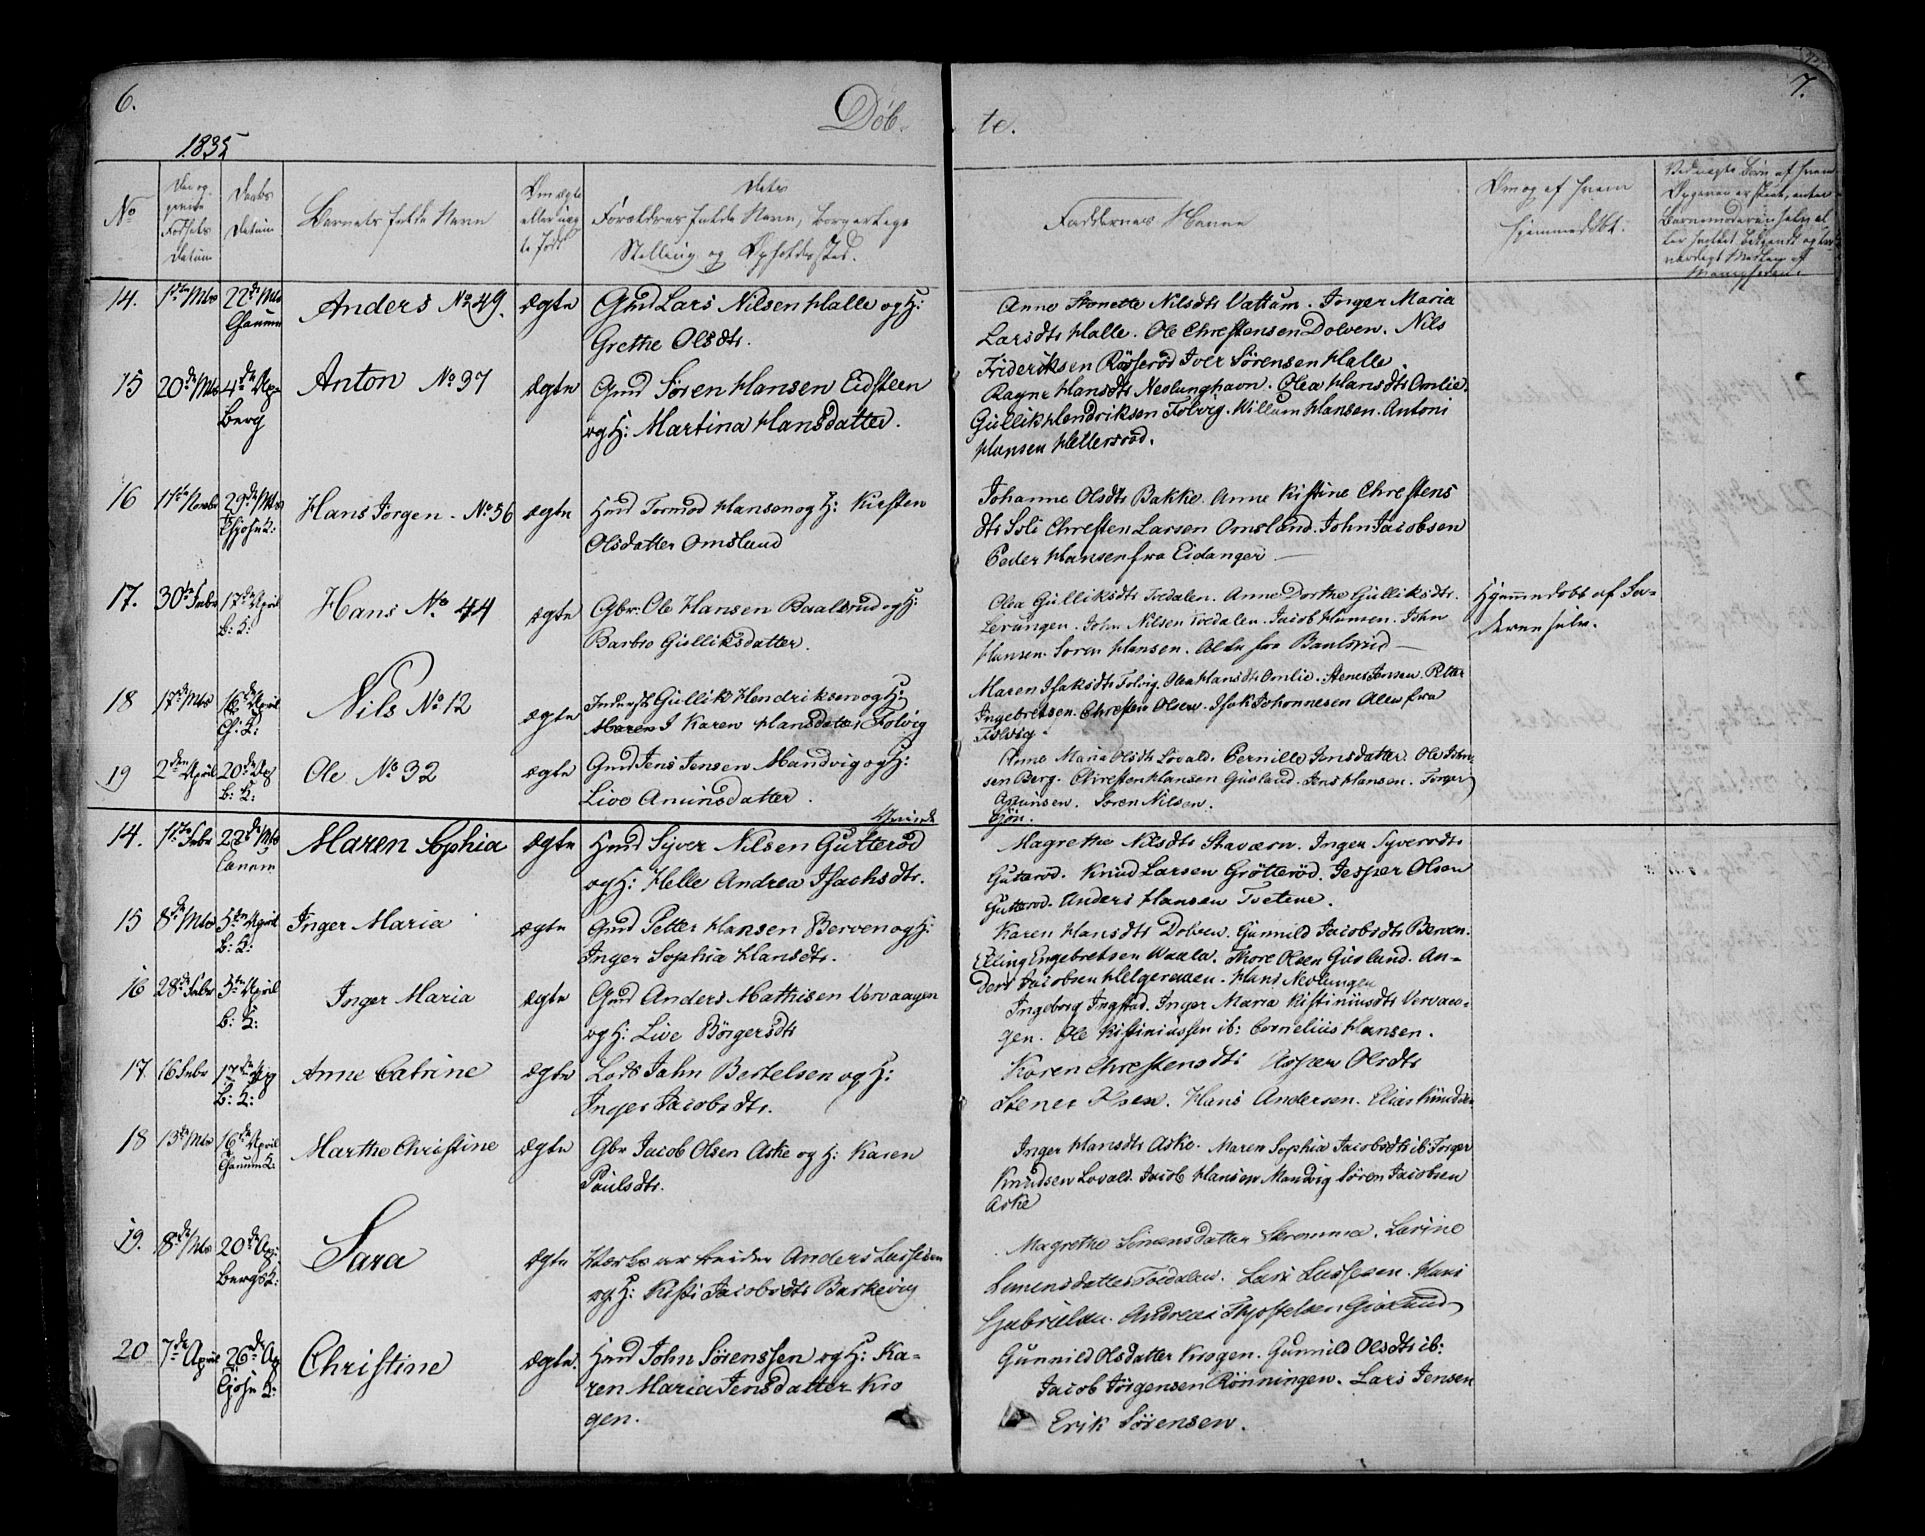 6.
Døb-
te.
7.
1835
No
Den og
Fødsels
Datum
Daabs
Datum
Barnets fulde Navn
Om ægte
eller uæg
te født
Dets
Forældres fulde Navn, borgerlige
Stilling og Opholdssted.
Faddernes Navne
Om og af hvem
hjemmedøbt.
14. 22de Mts Anders No 49. Ægte Gmd Lars Nilsen Halle og H:
Grethe Olsdtr.
Anne Nilsdtr Vattum. Inger Maria
Larsdtr Halle. Ole Chrestensen Dolven. Nils
Frideriksen Røsserød Iver Sørensen Halle.
15 20de Mts 4de Apr Anton No 37 Ægte Gmd Søren Hansen Eidsteen
Berg
og H: Martina Hansdatter.
Ragne Hansdtr Nevlunghavn. Olea Hansdtr Omlie.
Gullik Hendriksen Folvig. Willum Hansen. Antoni
Hansen Hellesrød.
16 29de Mts Hans Jørgen - No 36 Ægte Hmd Tormod Hansen og H: Kirsten
Olsdatter Omsland
Johanne Olsdtr Bakke. Anne Kistine Chrestens
dtr Soli Chresten Larsen Omsland. John Jacobsen
Peder Hansen fra Eidanger —
17. 17de April Hans No 44 Ægte Gbr: Ole Hansen Baalsrud og H:
B: K:
Barbro Gulliksdatter.
Olea Gulliksdtr Tvedalen. Anne Dorthe Gulliksdtr.
Lerungen. John Nilsen Tvedalen. Jacob Hansen. John
Hansen. Soren Hansen. Alle fra Baalsrud —
Hjemmedøbt af Fa-
deren selv.
18 17de Mts 16de April Nils No 12 Ægte Inderst Gullik Hendriksen og H:
Maren I Karen Hansdatter Folvig
Maren Isaksdtr Folvig. Olea Hansdtr Omlie. Stener Jensen. Petter
Ingebretsen. Chresten Olsen. Isak Johannesen Alle fra
Folvig.
19 2den April 20de Ap Ole No 32 Ægte Gmd Jens Jensen Mandvig og H:
B: K:
Live Amunsdatter.
Anne Maria Olsdtr Lovald. Pernille Jensdatter. Ole John-
sen Berg. Chresten Hansen Gusland. Jens Hansen. Torger
Amunsen. Soren Nilsen.
14. 22de Mts Maren Sophia Ægte Hmd Syver Nilsen Gutterød
og H: Helle Andrea Isachsdtr.
Magrethe Nilsdtr Staværn. Inger Syversdtr
Guterød. Knud Larsen Grøtterød. Jesper Olsen
Gutterød. Anders Hansen Tvetene.
15 8de Mts 5te April Inger Maria Ægte Gmd Petter Hansen Berven og H:
B: K:
Inger Sophia Hansdtr.
Karen Hansdtr Dolven. Gunnild Jacobsdtr Berven.
Elling Engebretsen Waala. Thore Olsen Gusland. An-
ders Jacobsen Helgeraaen. Hans Nevlungen
16 28de Febr 5te April Inger Maria Ægte Gmd Anders Mathisen Vervaagen
B: K:
og H: Live Børgersdtr
Ingeborg Ingstad. Inger Maria Kistiniusdtr Vervaa-
gen. Ole Kistiniussen ib: Cornelius Hansen.
17 16 Febr 17de Ap Anne Catrine Ægte Lods Jahn Bertelsen og H:
B: K:
Inger Jacobsdtr.
Karen Chrestensdtr Olsdtr
Stener Olsen. Hans Andersen. Elias Knudsen
18 13de Mts 16de April Marthe Christine Ægte Gbr Jacob Olsen Aske og H: Karen
Paulsdtr.
Inger Hansdtr Aske. Maren Sophia Jacobsdtr ib: Torger
Knudsen Lovald. Jacob Hansen Mandvig Søren Jacobsen
Aske
19. 8de Mts 20de Ap: Sara Ægte Anders Lassesen
Bergs K:
og H: Kisti Jacobsdtr Barkevig
Magrethe Simensdatter. Larine
Simensdatter Tvedalen. Lars Lassesen. Hans
Gabrielsen. Andreas Gusland
20 7de April 26de Ap Christine Ægte. Hmd John Sørenssen og H: Ka-
ren Maria Jensdatter Kro
gen.
Gunnild Olsdatter Krogen. Gunnild Olsdtr ib:
Jacob Jørgensen Rønningen. Lars Jensen
Erik Sørensen.